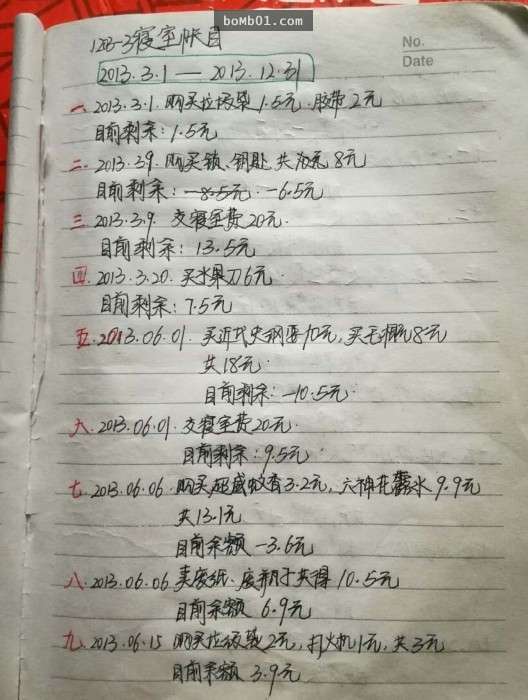 bomb01.com
1213-3寝室帐目
No.
Date
2013.3.1 — 2013.12.31
一. 2013.3.1. 购买垃圾袋1.5元.胶带2元
目前剩余: 1.5元
二. 2013.3.9. 购买锁、钥匙 共 8元
目前剩余: -8.5元. -6.5元
三. 2013.3.9. 交寝室费20元.
目前剩余: 13.5元
四. 2013.3.20. 买水果刀6元.
目前剩余: 7.5元
五. 2013.06.01. 买近代史纲要10元, 买毛概8元
共18元
目前剩余: -10.5元.
六. 2013.06.01. 交寝室费20元.
目前剩余: 9.5元
七. 2013.06.06. 购买超威蚊香3.2元, 六神花露水 9.9元
共13.1元
目前余额 -3.6元
八. 2013.06.06 卖废纸、废瓶子共得 10.5元
目前余额 6.9元
九. 2013.06.15 购买垃圾袋2元, 打火机1元, 共3元
目前余额 3.9元